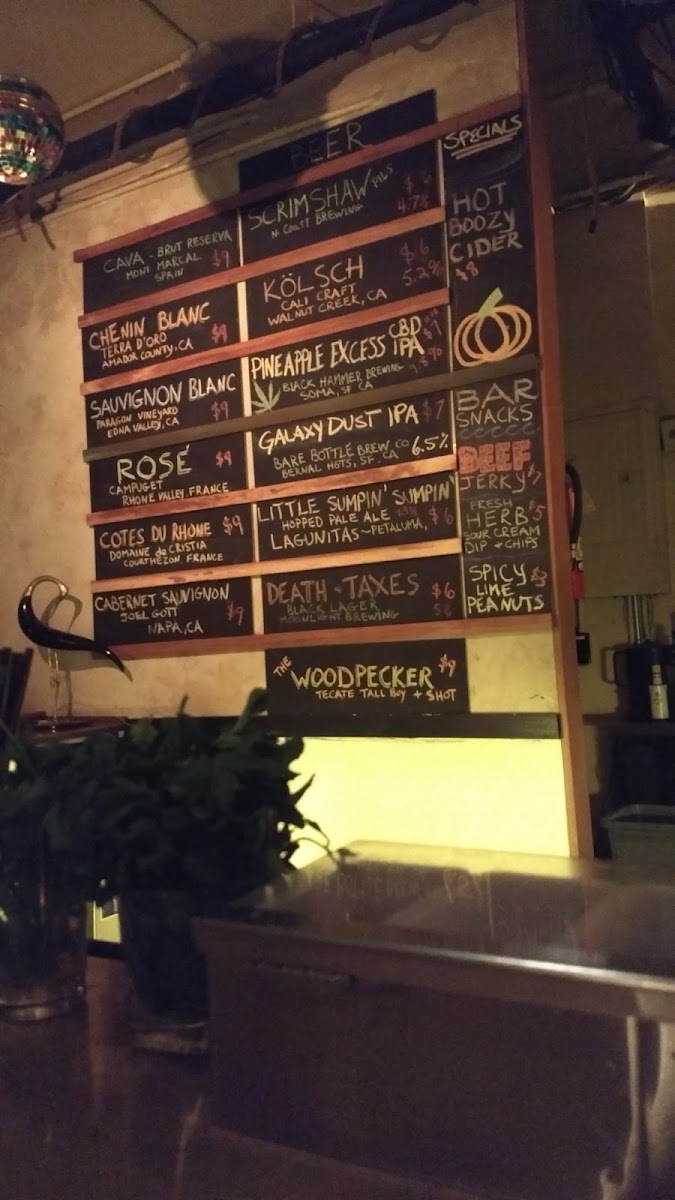 BEER
CAVA - BRUT RESERVA
MONT MARCAL $9
SPAIN
CHENIN BLANC
TERRA D'ORO $9
AMADOR COUNTY, CA
SAUVIGNON BLANC
PARAGON VINEYARD $9
EDNA VALLEY, CA
ROSÉ $9
CAMPUGET
RHONE VALLEY, FRANCE
COTES DU RHONE $9
DOMAINE de CRISTIA
COURTHEZON, FRANCE
CABERNET SAUVIGNON
JOEL GOTT $9
NAPA, CA
SCRIMSHAW PILS
N. COAST BREWING 4.7%
KÖLSCH $6
CALI CRAFT 5.2%
WALNUT CREEK, CA
PINEAPPLE EXCESS CBD IPA $7
BLACK HAMMER BREWING
SOMA, SF CA
GALAXY DUST IPA $7
BARE BOTTLE BREW CO 6.5%
BERNAL HGTS, SF. CA
LITTLE SUMPIN' SUMPIN'
HOPPED PALE ALE $6
LAGUNITAS ~ PETALUMA,
DEATH + TAXES $6
BLACK LAGER
MOONLIGHT BREWING
THE WOODPECKER $9
TECATE TALL BOY + SHOT
SPECIALS
HOT
BOOZY
CIDER
$8
BAR
SNACKS
BEEF
JERKY $7
FRESH
HERB $5
SOUR CREAM
DIP + CHIPS
SPICY $3
LIME
PEANUTS